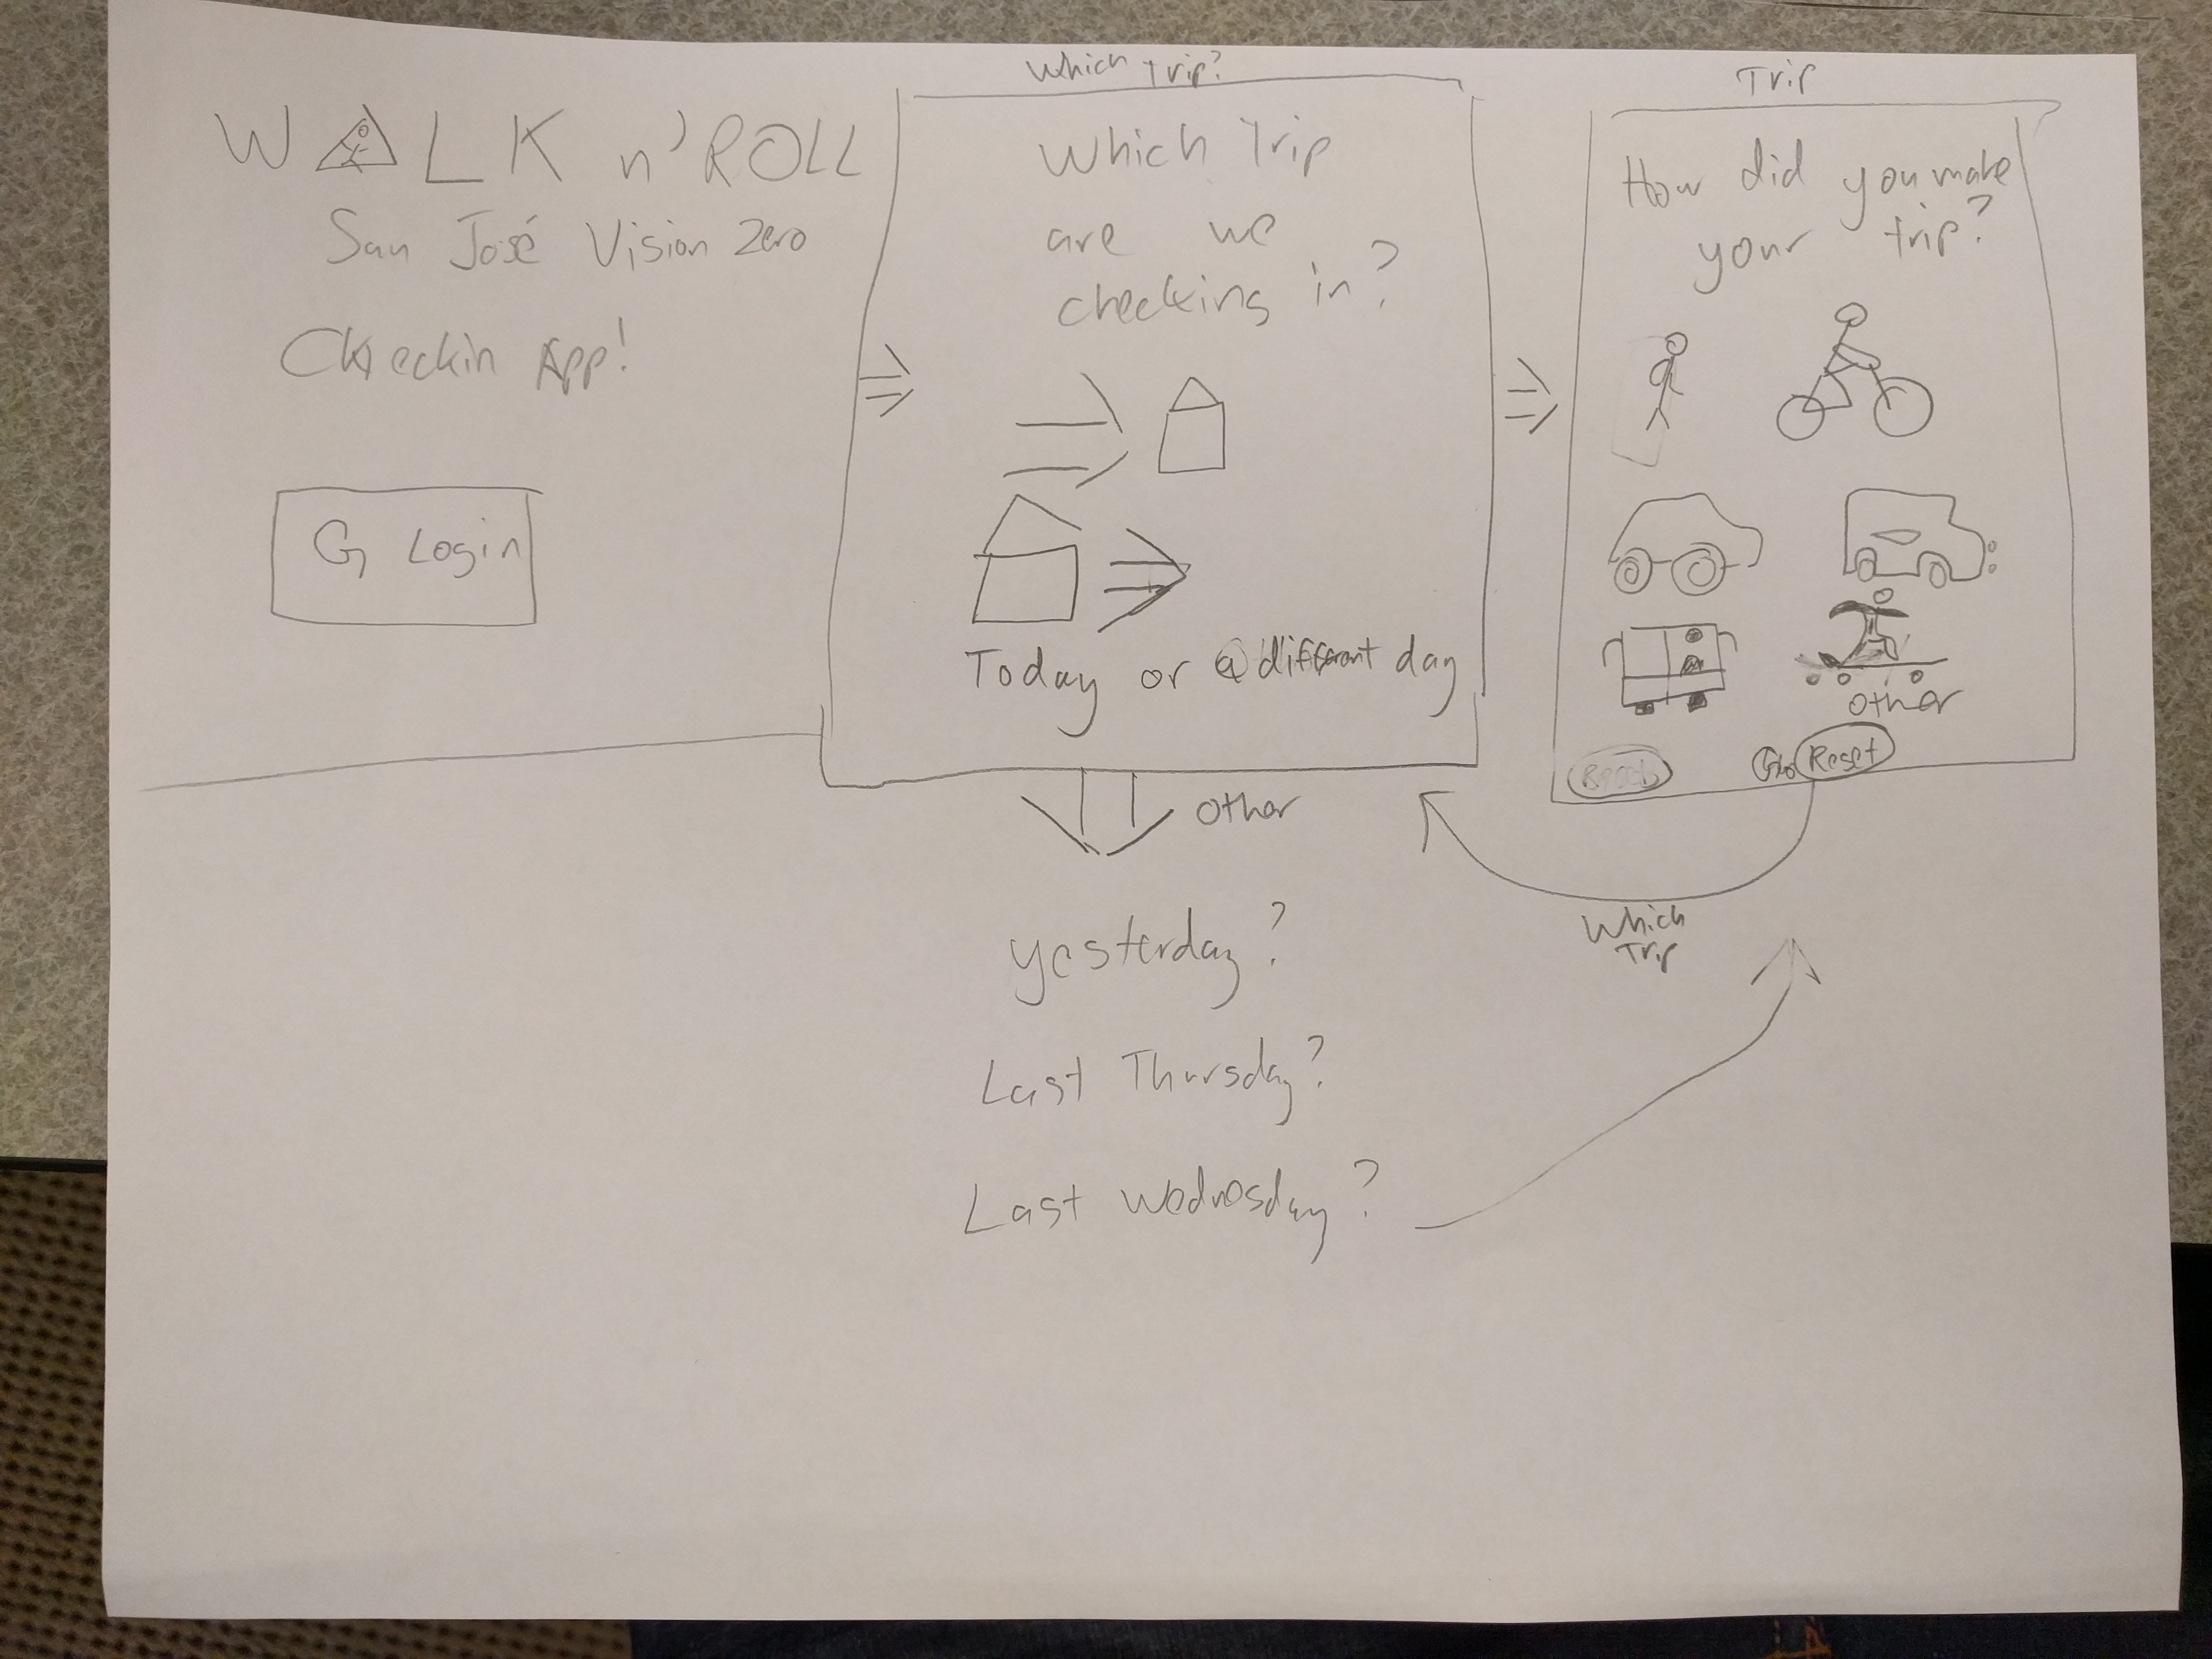 WALK n' ROLL
San José Vision Zero
Checkin App!
G Login
Which Trip?
Which Trip
are we
checking in?
Today or a different day
Other
yesterday?
Last Thursday?
Last Wednesday?
Trip
How did you make
your trip?
other
Reset
Which
Trip